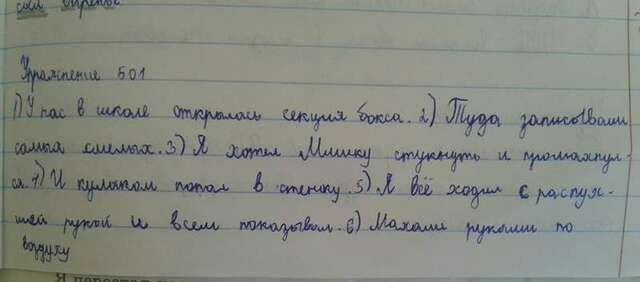 Упражнение 501
1) У нас в школе открылась секция бокса. 2) Туда записывали
самых смелых. 3) Я хотел Мишку стукнуть и промахнул-
ся. 4) И кулаком попал в стенку. 5) Я всё ходил с распух-
шей рукой и всем показывал. 6) Махали руками по
воздуху